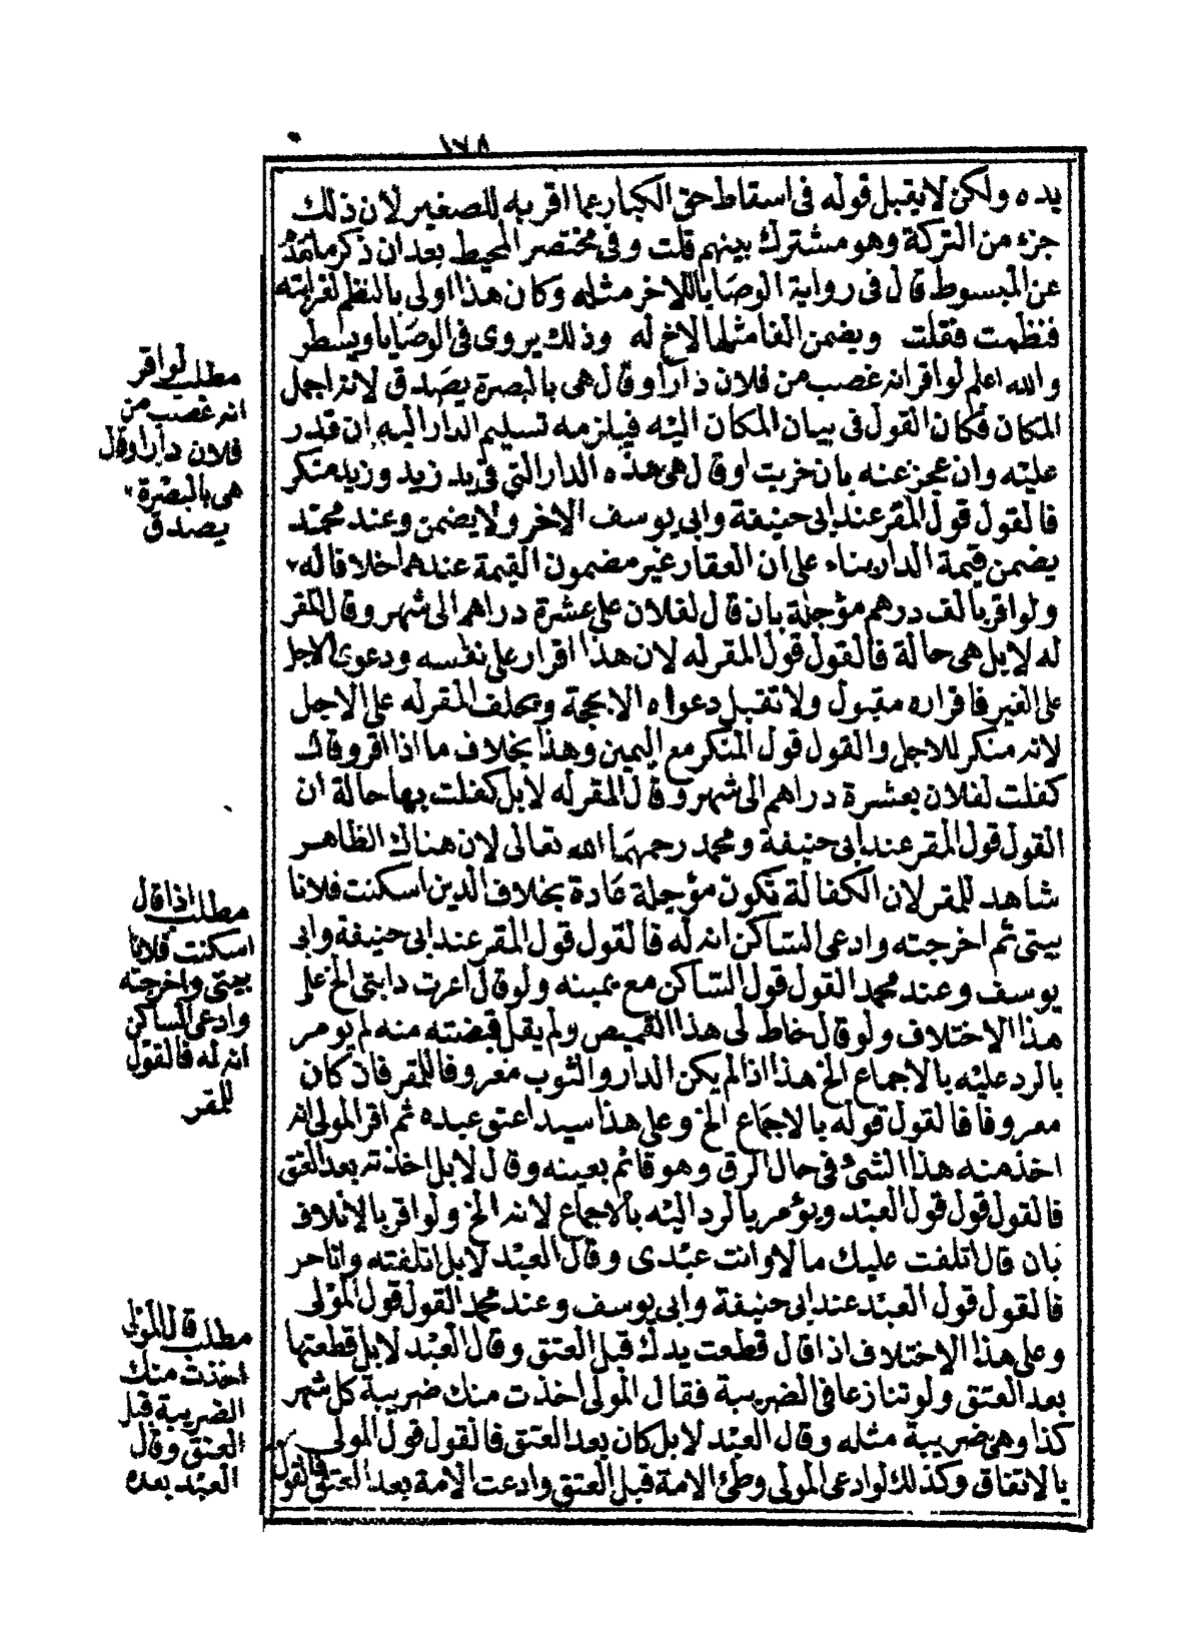 ١٧٨
يده ولكن لا يقبل قوله فى اسقاط حق الكبار عما اقر به للصغير لان ذلك
جزء من التركة وهو مشترك بينهم قلت وفى مختصر المحيط بعد ان ذكر ما تقدم
عن المبسوط قال فى رواية الوصايا للاخر مثله وكان هذا اولى بالنظم لغرابته
فنظمت فقلت ويضمن الفا مثلها لاخ له وذلك يروى فى الوصايا ويسطر
والله اعلم لو اقر انه غصب من فلان دارا وقال هى بالبصرة يصدق لانه اجمل
المكان فكان القول فى بيان المكان اليه فيلزمه تسليم الدار اليه ان قدر
عليه وان عجز عنه بان خربت او قال هى هذه الدار التى فى يد زيد وزيد منكر
فالقول قول المقر عند ابى حنيفة وابى يوسف الاخر ولا يضمن وعند محمد
يضمن قيمة الدار بناء على ان العقار غير مضمون القيمة عندهما خلافا له
ولو اقر بالف درهم مؤجلة بان قال لفلان على عشرة دراهم الى شهر وقال المقر
له لا بل هى حالة فالقول قول المقر له لان هذا اقرار على نفسه ودعوى الاجل
على الغير فاقراره مقبول ولا تقبل دعواه الا بحجة ويحلف المقر له على الاجل
لانه منكر للاجل والقول قول المنكر مع اليمين وهذا بخلاف ما اذا اقر وقال
كفلت لفلان بعشرة دراهم الى شهر وقال المقر له لا بل كفلت بها حالة ان
القول قول المقر عند ابى حنيفة ومحمد رحمهما الله تعالى لان هناك الظاهر
شاهد للمقر لان الكفالة تكون مؤجلة عادة بخلاف الدين اسكنت فلانا
بيتى ثم اخرجته وادعى الساكن انه له فالقول قول المقر عند ابى حنيفة وابى
يوسف وعند محمد القول قول الساكن مع يمينه ولو قال اعرت دابتى الخ على
هذا الاختلاف ولو قال خاط لى هذا القميص ولم يقل قبضته منه لم يؤمر
بالرد عليه بالاجماع الخ هذا اذا لم يكن الدار والثوب معروفا للمقر فاذ كان
معروفا فالقول قوله بالاجماع الخ وعلى هذا سيد اعتق عبده ثم اقر المولى انه
اخذ منه هذا الشئ فى حال الرق وهو قائم بعينه وقال لا بل اخذته بعد العتق
فالقول قول قول العبد ويؤمر بالرد اليه بالاجماع لانه الخ ولو اقر بالاتلاف
بان قال اتلفت عليك مالا وانت عبدى وقال العبد لا بل اتلفته وانا حر
فالقول قول العبد عند ابى حنيفة وابى يوسف وعند محمد القول قول المولى
وعلى هذا الاختلاف اذا قال قطعت يدك قبل العتق وقال العبد لا بل قطعتها
بعد العتق ولو تنازعا فى الضريبة فقال المولى اخذت منك ضريبة كل شهر
كذا وهى ضريبة مثله وقال العبد لا بل كان بعد العتق فالقول قول المولى
بالاتفاق وكذلك لو ادعى المولى وطئ الامة قبل العتق وادعت الامة بعد العتق فالقول
مطلب لو اقر
انه غصب من
فلان دارا وقال
هى بالبصرة
يصدق
مطلب اذا قال
اسكنت فلانا
بيتى واخرجته
وادعى الساكن
انه له فالقول
للمقر
مطلب قال المولى
اخذت منك
الضريبة قبل
العتق وقال
العبد بعده